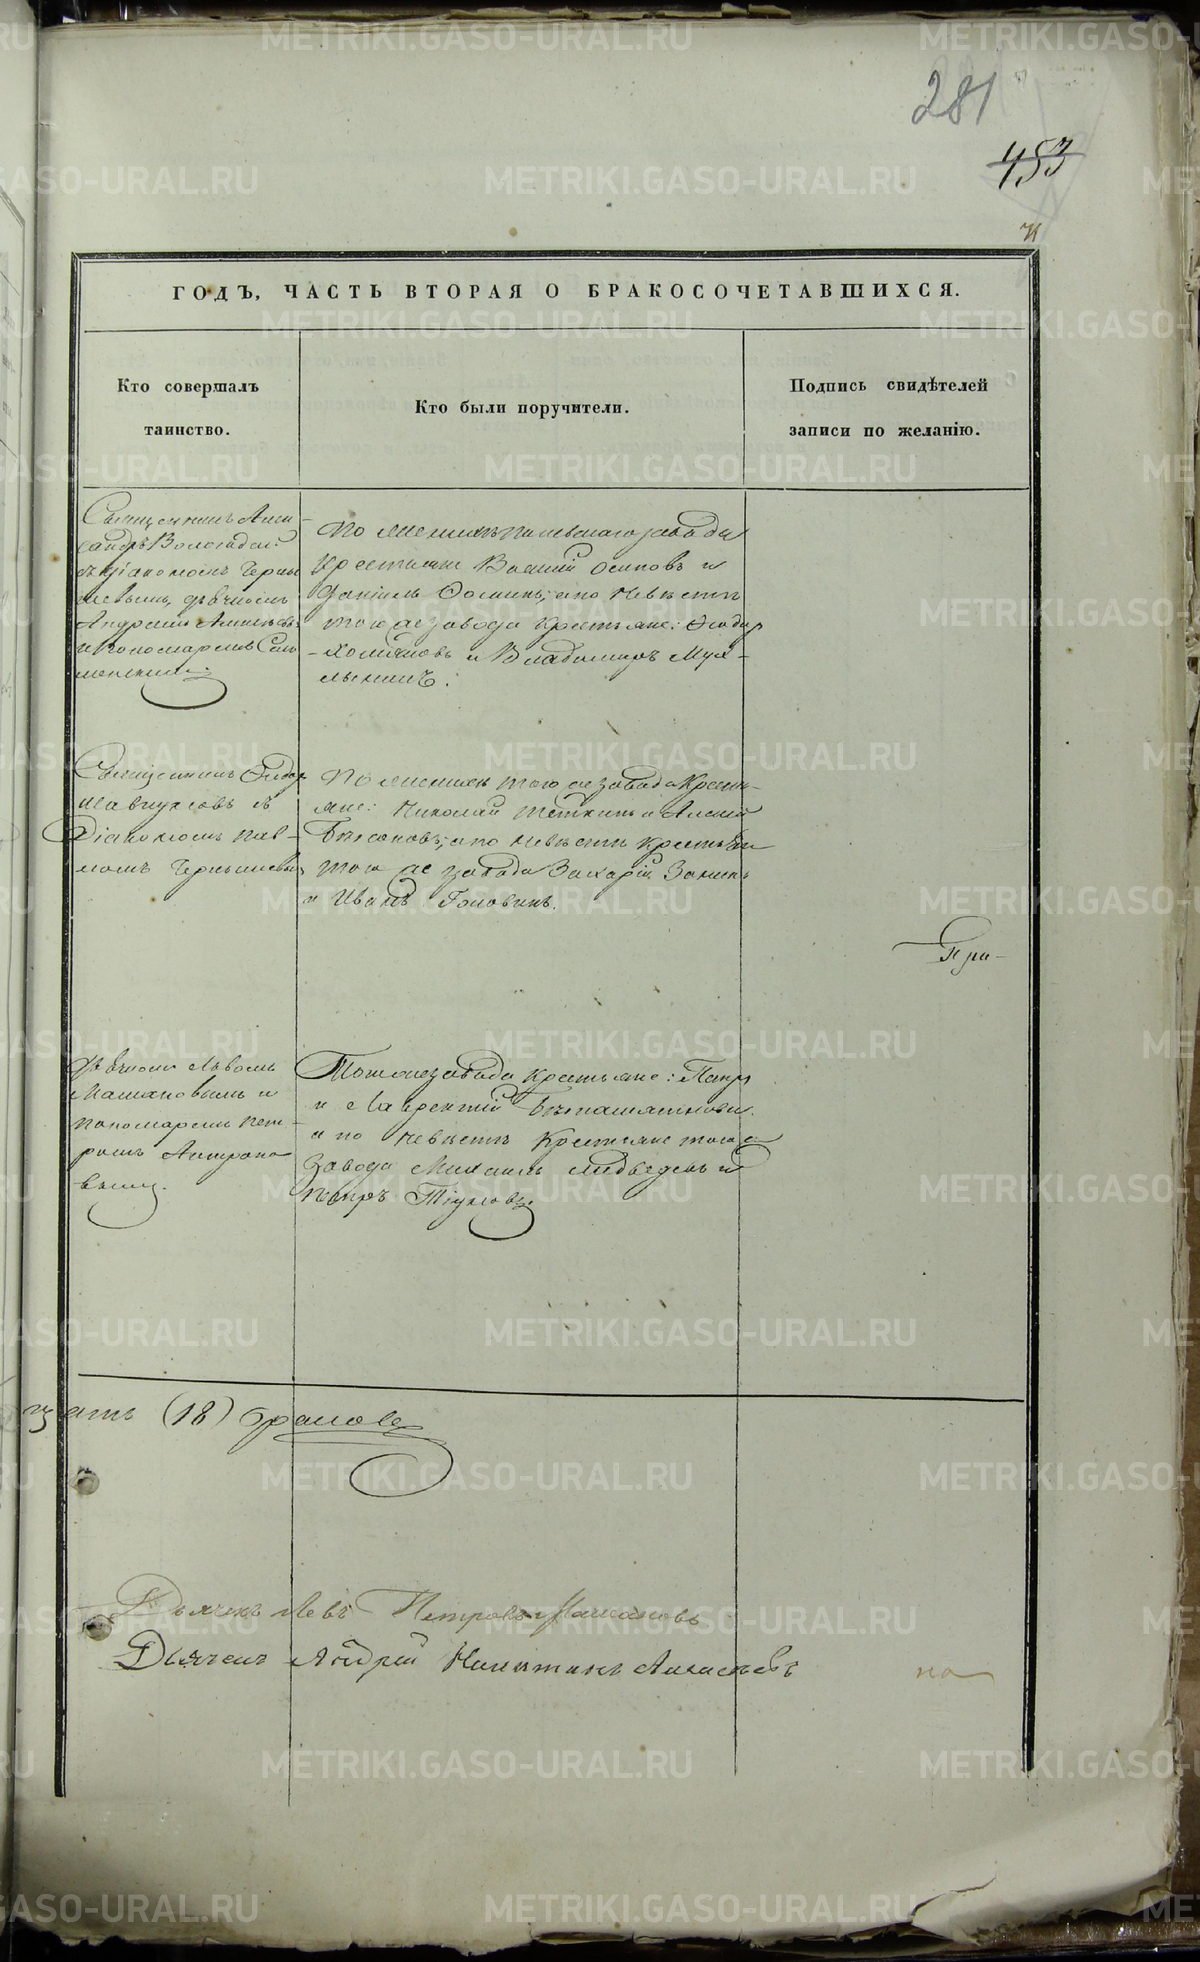 281
453
ГОДЪ, ЧАСТЬ ВТОРАЯ О БРАКОСОЧЕТАВШИХСЯ.
Кто совершалъ
таинство.
Кто были поручители.
Подпись свидѣтелей
записи по желанію.
Священникъ Алек
сандръ Вологодск:
съ діакономъ Черны
шевымъ, дьячкомъ
Андреемъ
и пономаремъ
По женихѣ завода
Крестьяне Василій Осиповъ и
Даніилъ Ѳоминъ; а по невѣстѣ
того же завода крестьяне: Ѳеодоръ
и Владимиръ Мух-
лынинъ.
Священникъ Ѳедоръ
съ
Діакономъ Пав-
ломъ Чернышевы
По женихѣ того же завода Кресть-
яне: Николай Теткинъ и Алексей
а по невѣстѣ крестьяне
того же завода Захарій Зоминъ
и Иванъ Головинъ.
При-
дьячкомъ Львомъ
Машановымъ и
пономаремъ Пет-
ромъ Антропо
вымъ.
Того же завода крестьяне: Петръ
и Лаврентій
а по невѣстѣ крестьяне того же
завода Михаилъ Медведевъ и
Петръ
цать (18) браковъ
Дьячекъ Левъ Петровъ Машановъ
Дьячекъ Андрей Никитинъ
но
METRIKI.GASO-URAL.RU